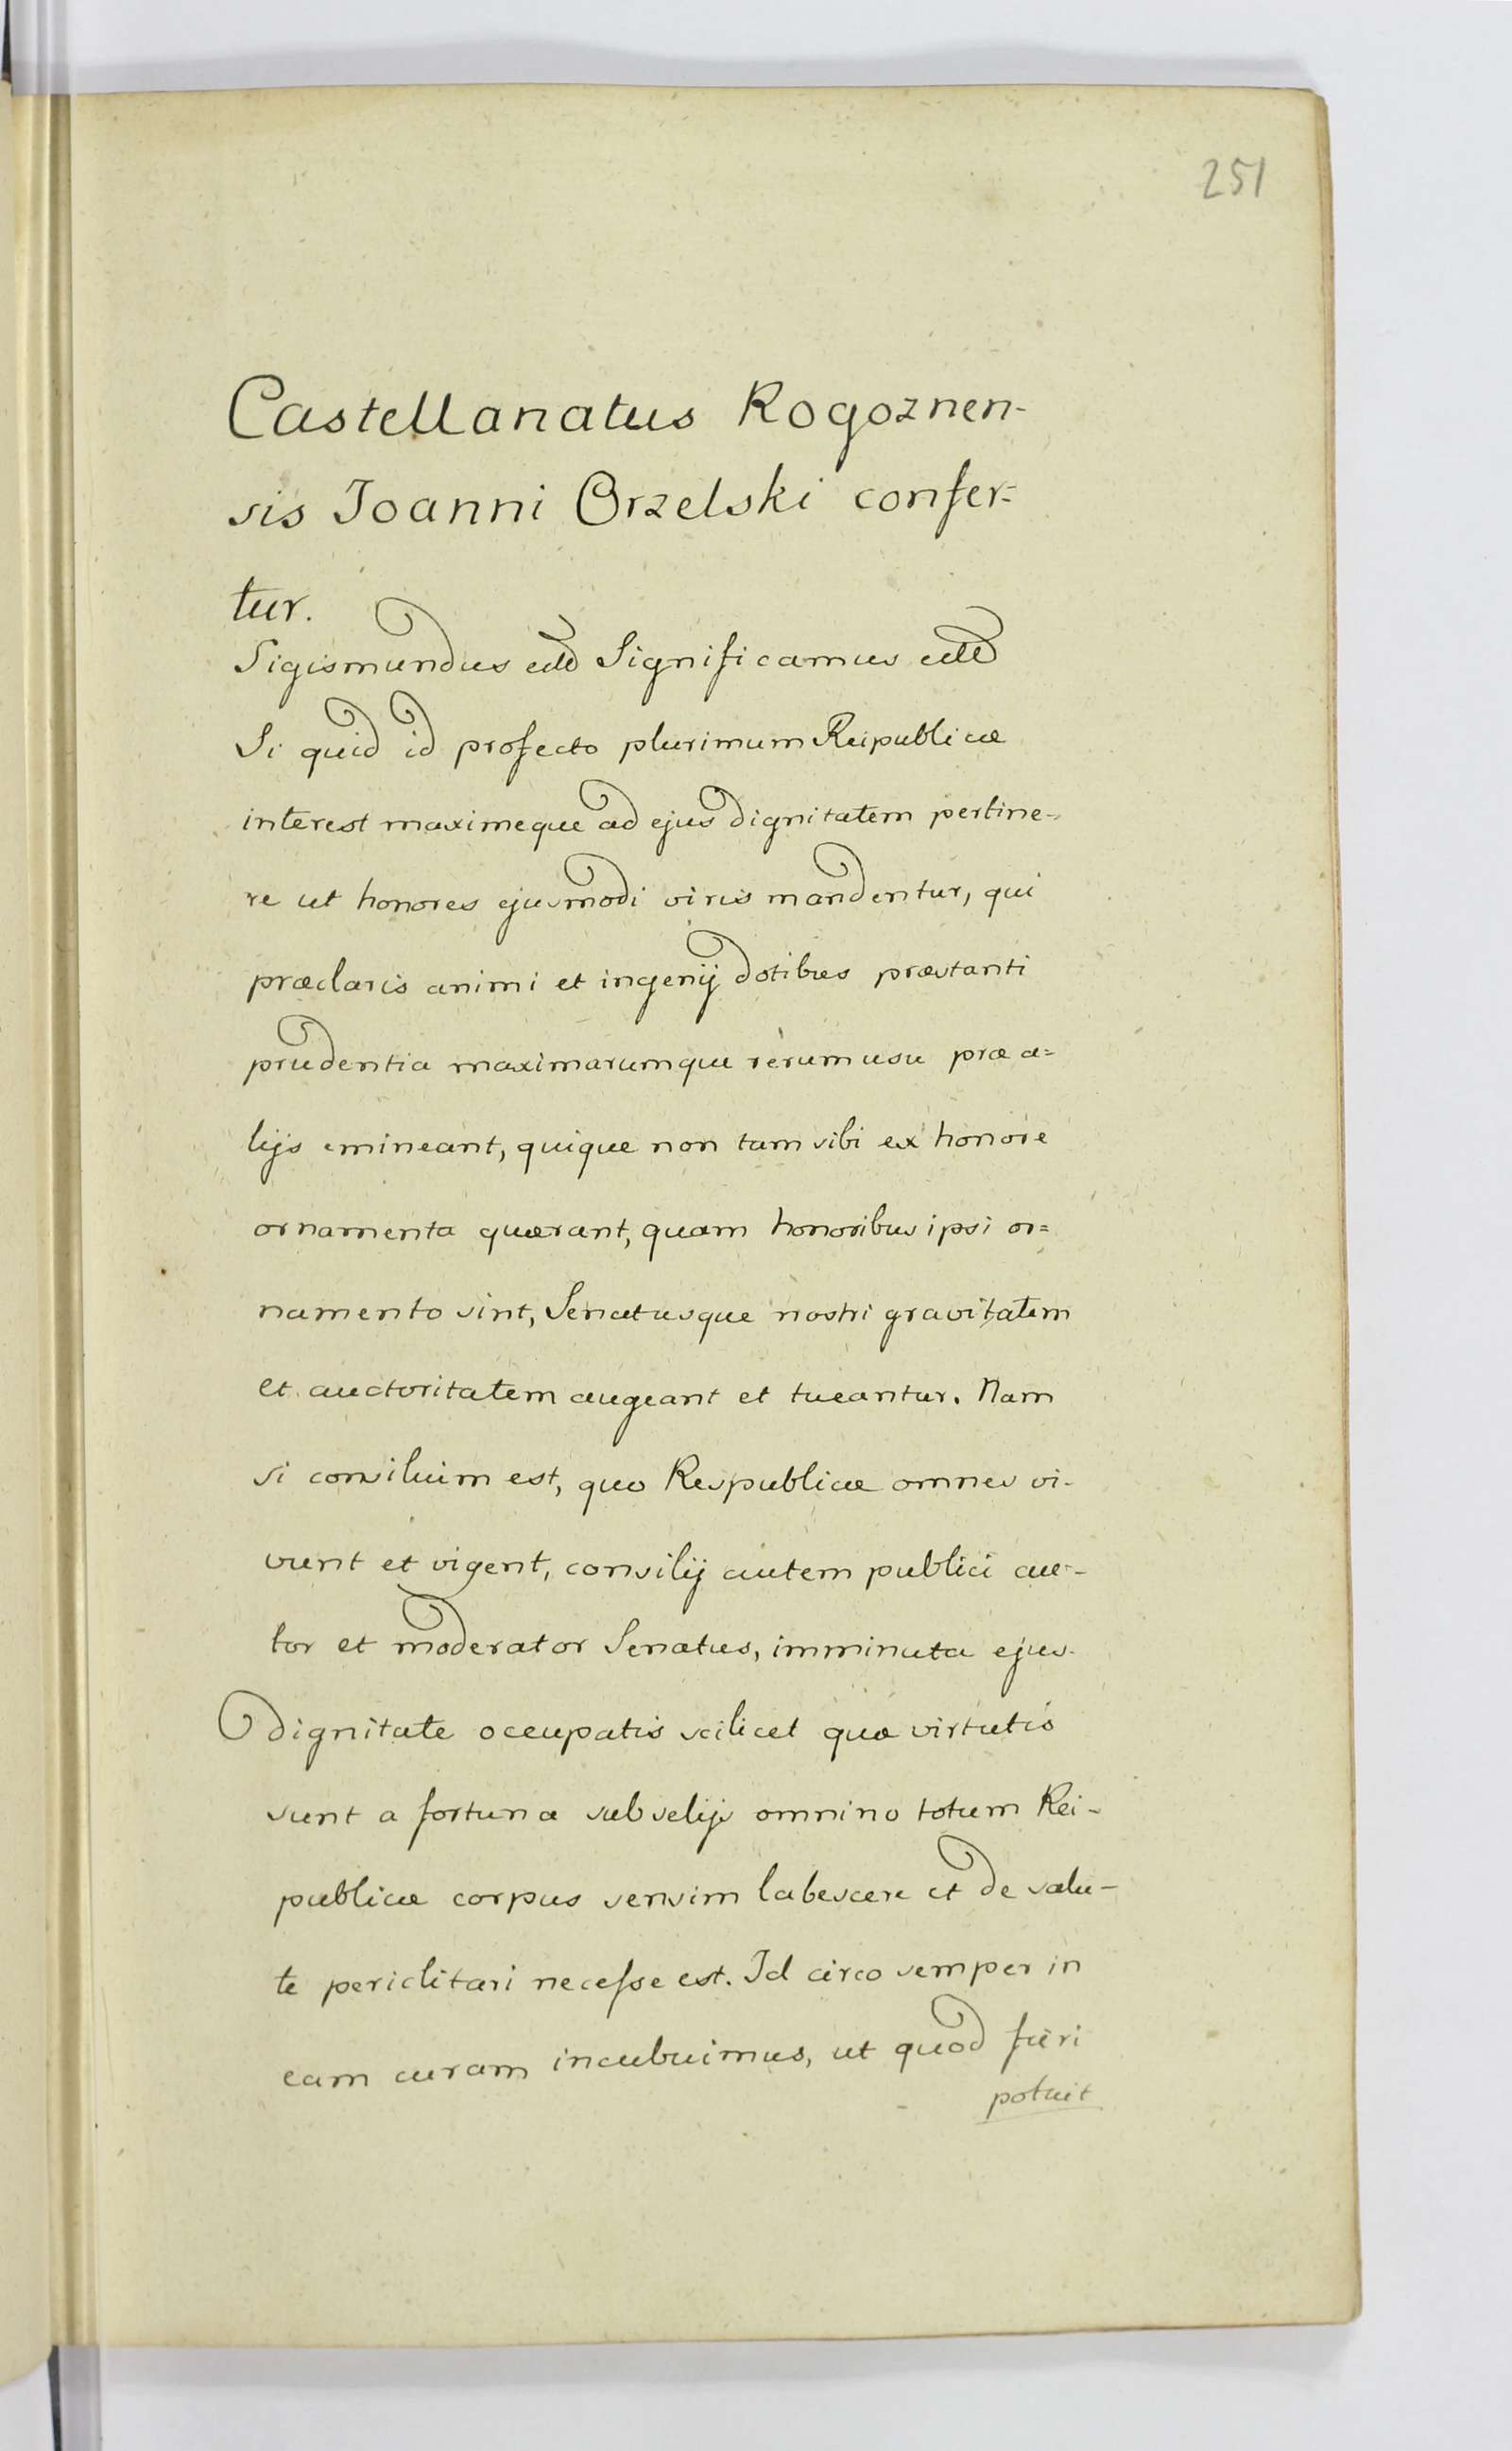 251
Castellanatus Rogoznen-
sis Joanni Orzelski confer=
tur.
Sigismundus Significamus
Si quid id profecto plurimum Reipublicæ
interest maximeque ad ejus dignitatem pertine-
re ut honores ejusmodi viris mandentur, qui
præclaris animi et ingenij dotibus præstanti
prudentia maximarumque rerum usu præ a=
lijs emineant, quique non tam sibi ex honore
ornamenta quærant, quam honoribus ipsi or=
namento sint, Senatusque nostri gravitatem
et auctoritatem augeant et tueantur. Nam
si consilium est, quo Respublicæ omnes vi-
vunt et vigent, consilij autem publici auc-
tor et moderator Senatus, imminuta ejus
dignitate occupatis scilicet quæ virtutis
sunt a fortuna subselijs omnino totum Rei-
publicæ corpus sensim labescere et de salu-
te periclitari necesse est. Id circo semper in
eam curam incubuimus, ut quod fieri
potuit